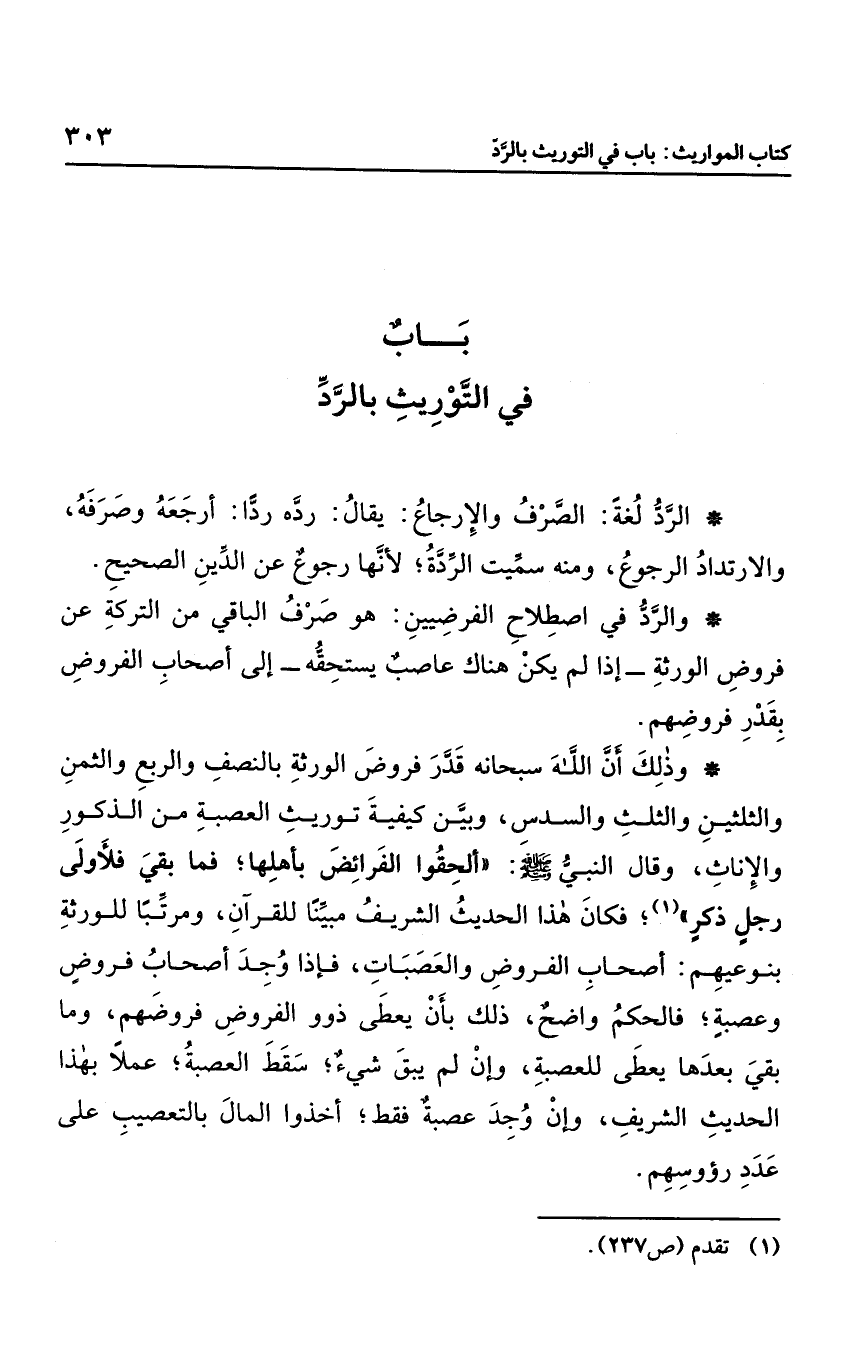 كتاب المواريث: باب في التوريث بالرَّدّ
٣٠٣
بَـــابٌ
في التَّوْرِيثِ بالرَّدِّ
* الرَّدُّ لُغةً: الصَّرْفُ والإِرجاعُ: يقالُ: ردَّه ردًّا: أرجَعَهُ وصَرَفَهُ،
والارتدادُ الرجوعُ، ومنه سمِّيت الرِّدَّةُ؛ لأنَّها رجوعٌ عن الدِّينِ الصحيحِ.
* والرَّدُّ في اصطِلاحِ الفرضِيينِ: هو صَرْفُ الباقي من التركةِ عن
فروضِ الورثةِ ــ إذا لم يكنْ هناك عاصبٌ يستحِقُّه ــ إلى أصحابِ الفروضِ
بِقَدْرِ فروضِهم.
* وذٰلِكَ أَنَّ اللَّـٰهَ سبحانه قَدَّرَ فروضَ الورثةِ بالنصفِ والربعِ والثمنِ
والثلثيـنِ والثلـثِ والسـدسِ، وبيَّـن كيفيـةَ تـوريـثِ العصبـةِ مـن الـذكـورِ
والإِناثِ، وقال النبـيُّ ﷺ: «ألحِقُوا الفَرائِضَ بأهلِها؛ فما بقيَ فلأَولَى
رجلٍ ذكرٍ»(١)؛ فكانَ هٰذا الحديثُ الشريـفُ مبيِّنًا للقـرآنِ، ومرتِّبًا للـورثةِ
بنـوعيهِـم: أصحـابِ الفـروضِ والعَصَبَـاتِ، فـإذا وُجِـدَ أصحـابُ فـروضٍ
وعصبةٍ؛ فالحكمُ واضحٌ، ذلك بأَنْ يعطَى ذوو الفروضِ فروضَهم، وما
بقيَ بعدَها يعطَى للعصبةِ، وإنْ لم يبقَ شيءٌ؛ سَقَطَ العصبةُ؛ عملًا بهٰذا
الحديثِ الشريفِ، وإنْ وُجِدَ عصبةٌ فقط؛ أخذوا المالَ بالتعصيبِ على
عَدَدِ رؤوسِهِم.
(١) تقدم (ص٢٣٧).